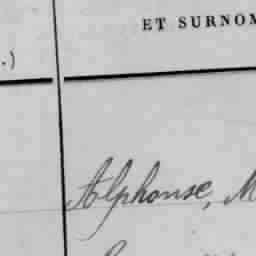 ET SURNOM
.)
Alphonse, M